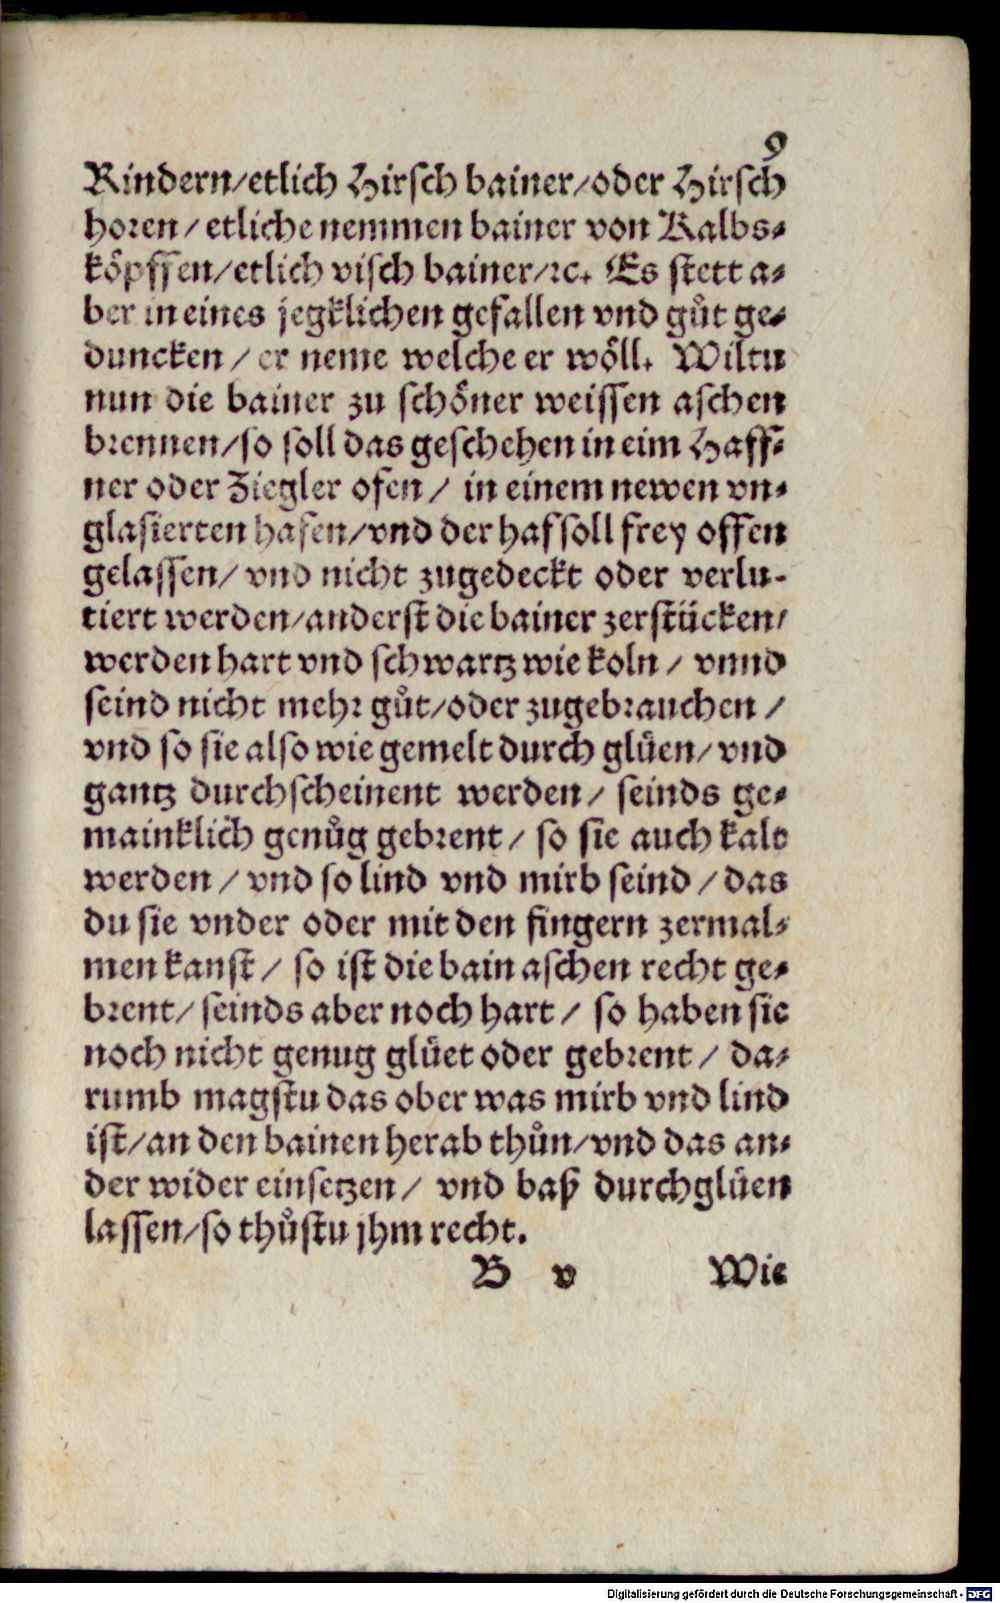 9
Rindern/etlich Hirsch bainer/oder Hirsch
horen/ etliche nemmen bainer von Kalbs⸗
köpffen/etlich visch bainer/ꝛc. Es stett a⸗
ber in eines jegklichen gefallen vnd gůt ge⸗
duncken/ er neme welche er wöll. Wiltu
nun die bainer zu schöner weissen aschen
brennen/so soll das geschehen in eim Haff⸗
ner oder Ziegler ofen/ in einem newen vn⸗
glasierten hafen/vnd der haf soll frey offen
gelassen/ vnd nicht zugedeckt oder verlu-
tiert werden/anderst die bainer zerstücken/
werden hart vnd schwartz wie koln/ vnnd
seind nicht mehr gůt/oder zugebrauchen/
vnd so sie also wie gemelt durch glüen/vnd
gantz durchscheinent werden/ seinds ge⸗
mainklich genůg gebrent/ so sie auch kalt
werden/ vnd so lind vnd mirb seind/ das
du sie vnder oder mit den fingern zermal⸗
men kanst/ so ist die bain aschen recht ge⸗
brent/ seinds aber noch hart/ so haben sie
noch nicht genug glüet oder gebrent/ da⸗
rumb magstu das ober was mirb vnd lind
ist/an den bainen herab thůn/vnd das an⸗
der wider einsetzen/ vnd baß durchglüen
lassen/so thůstu jhm recht.
B v Wie
Digitalisierung gefördert durch die Deutsche Forschungsgemeinschaft - DFG